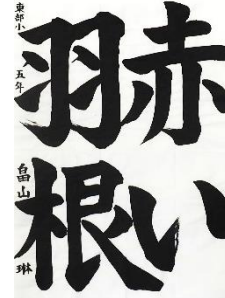 赤い
羽根
東部小 五年 畠山 琳